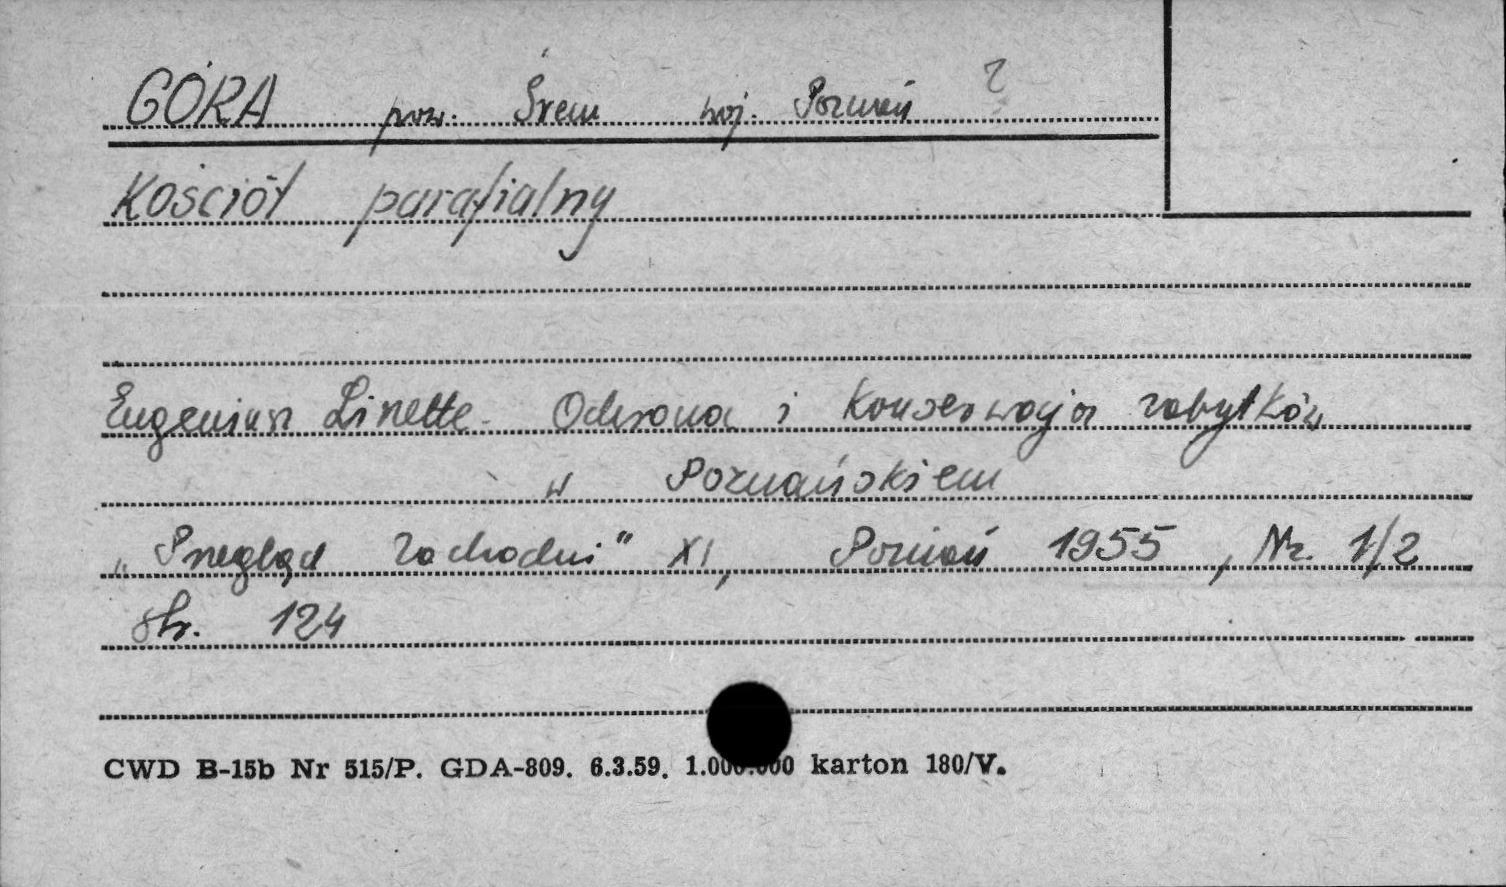 GÓRA pow. Śrem woj. Poznań ?
Kościół parafialny
Eugeniusz Linette - Ochrona i konserwacja zabytków
w Poznańskiem
„Przegląd Zachodni" XI, Poznań 1955, Nr. 1/2
str. 124
CWD B-15b Nr 515/P. GDA-809. 6.3.59. 1.000.000 karton 180/V.